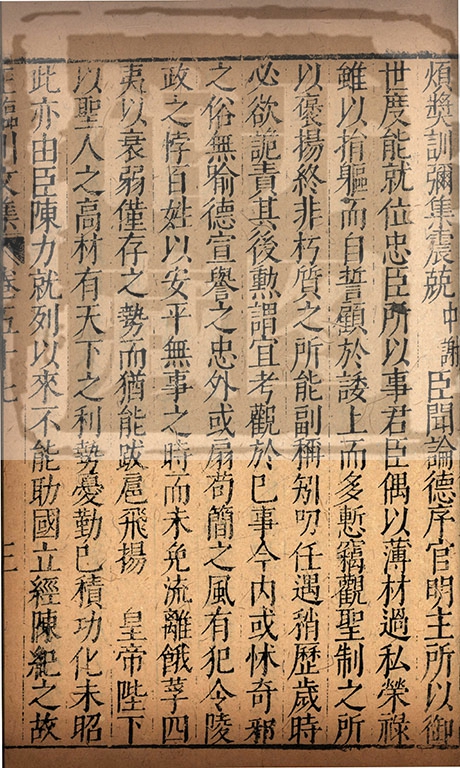 煩獎訓彌集震兢中謝臣聞論德序官明主所以御
世度能就位忠臣所以事君臣偶以薄材過私榮祿
雖以捐軀而自誓顧於諉上而多慙竊觀聖制之所
以褒揚終非朽質之所能副稱矧叨任遇稍歷歲時
必欲詭責其後勲謂宜考觀於巳事今内或怵奇邪
之俗無喻德宣譽之忠外或扇苟簡之風有犯令陵
政之悖百姓以安平無事之時而未免流離餓莩四
夷以衰弱僅存之勢而猶能跋扈飛揚 皇帝陛下
以聖人之高材有天下之利勢憂勤巳積功化未昭
此亦由臣陳力就列以來不能助國立經陳紀之故
臨川文集 卷五十七 三